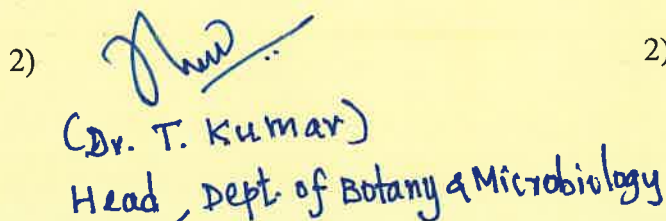 2)
2)
(Dr. T. Kumar)
Head, Dept. of Botany & Microbiology